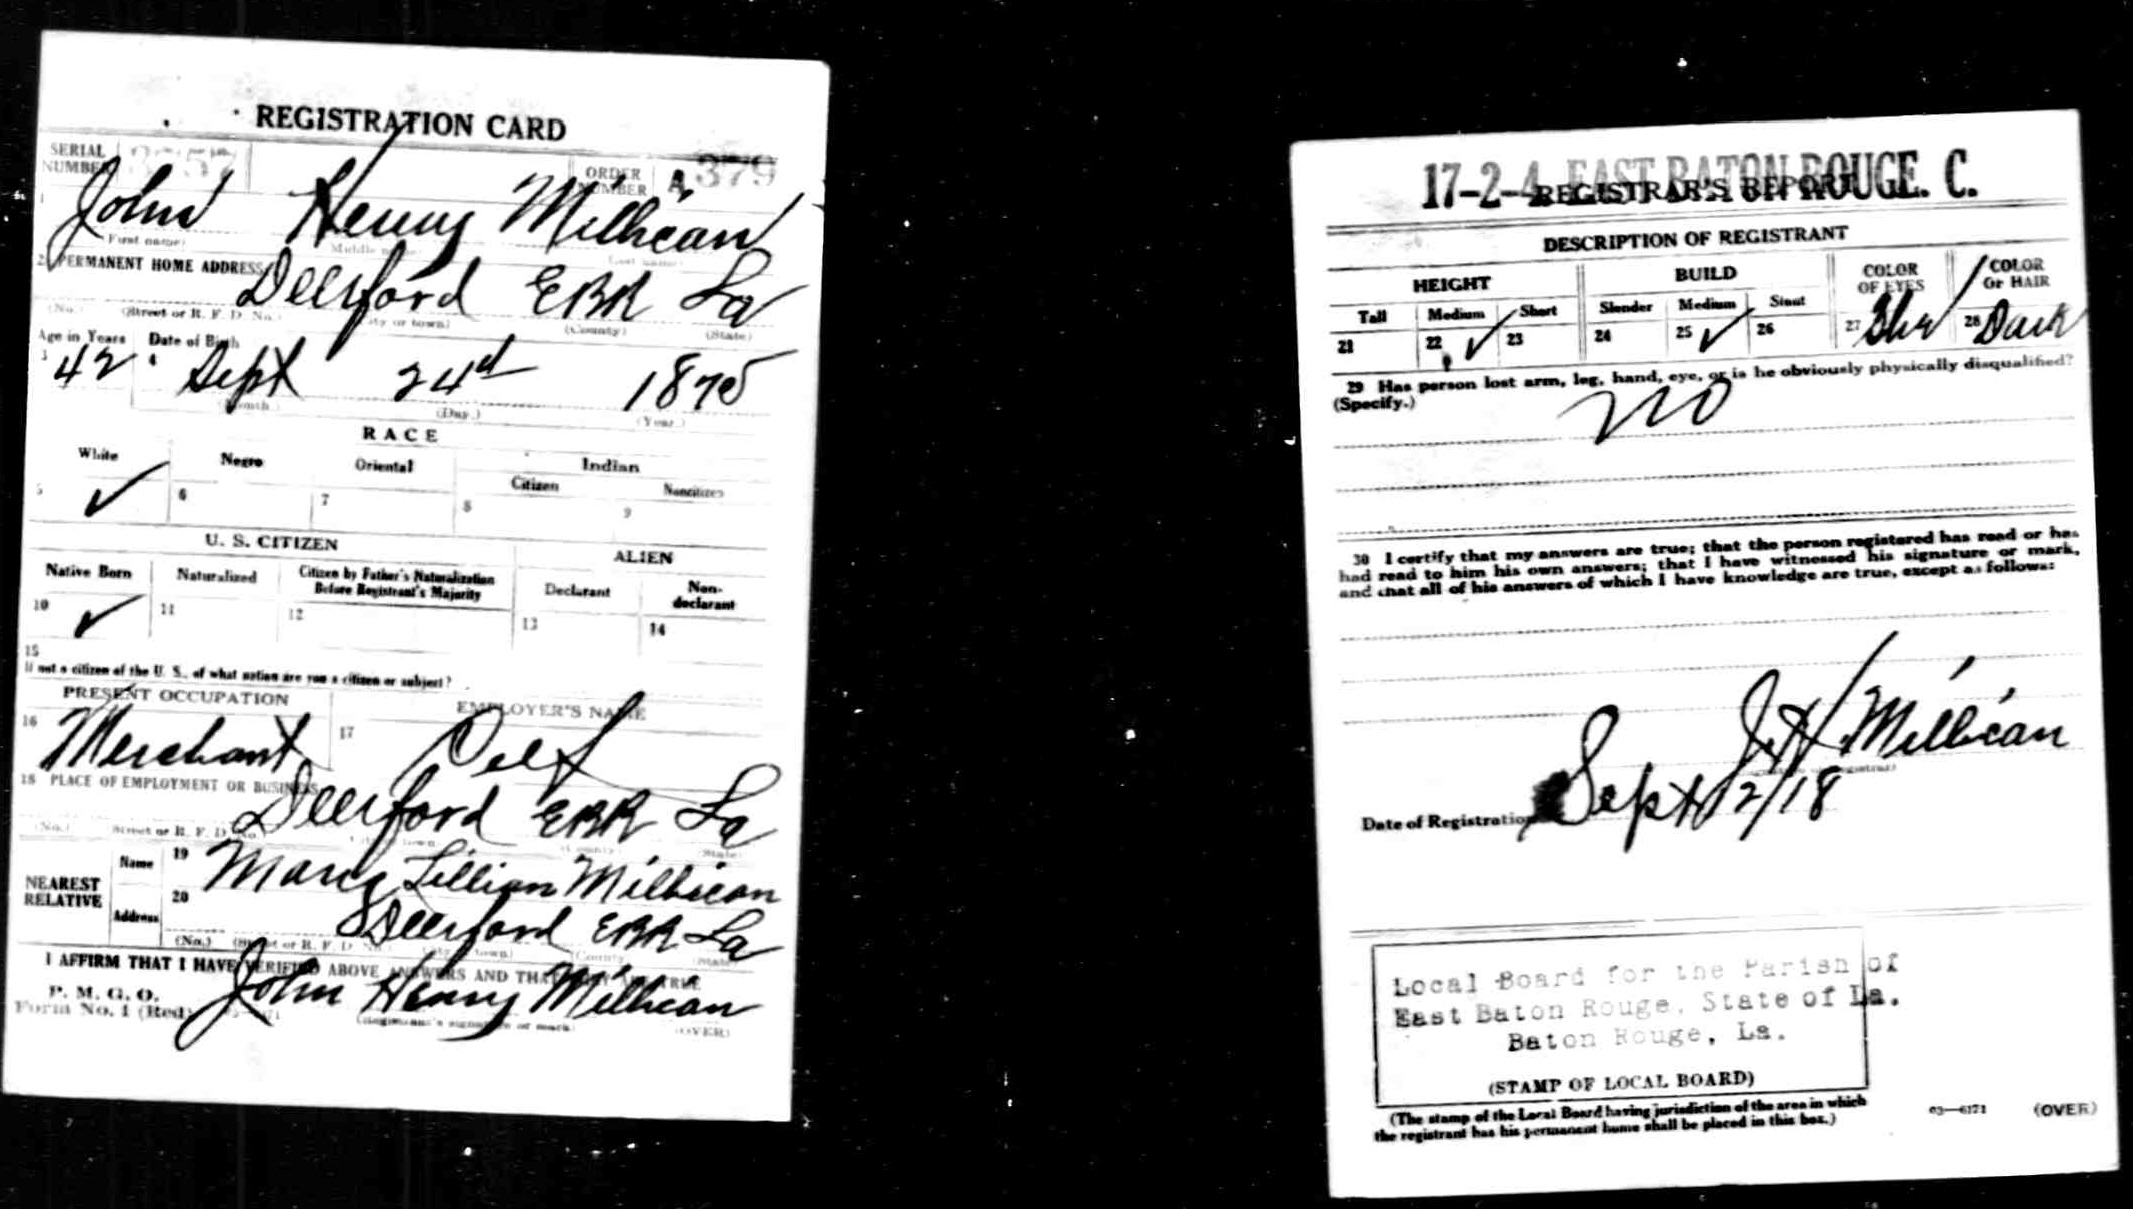 REGISTRATION CARD
SERIAL NUMBER
ORDER NUMBER A 379
1 John Henry Millican
(First name) (Middle name) (Last name)
2 PERMANENT HOME ADDRESS Deerford EBR La
(No.) (Street or R. F. D. No.) (City or town) (County) (State)
Age in Years Date of Birth
3 42 4 Sept 24th 1875
(Month.) (Day.) (Year.)
RACE
White Negro Oriental Indian
Citizen Noncitizen
5 ✓ 6 7 8 9
U. S. CITIZEN ALIEN
Native Born Naturalized Citizen by Father's Naturalization Before Registrant's Majority Declarant Non-declarant
10 ✓ 11 12 13 14
15
If not a citizen of the U. S., of what nation are you a citizen or subject?
PRESENT OCCUPATION EMPLOYER'S NAME
16 Merchant 17 Self
18 PLACE OF EMPLOYMENT OR BUSINESS
Deerford EBR La
(No.) (Street or R. F. D. No.) (City or town) (County) (State)
NEAREST RELATIVE
Name 19 Mary Lillian Millican
Address 20 Deerford EBR La
(No.) (Street or R. F. D. No.) (City or town) (County) (State)
I AFFIRM THAT I HAVE VERIFIED ABOVE ANSWERS AND THAT THEY ARE TRUE
P. M. G. O.
Form No. 1 (Red)
John Henry Millican
(Registrant's signature or mark) (OVER)
17-2-4 EAST BATON ROUGE. C.
REGISTRAR'S REPORT
DESCRIPTION OF REGISTRANT
HEIGHT BUILD COLOR OF EYES COLOR OF HAIR
Tall Medium Short Slender Medium Stout
21 22 ✓ 23 24 25 ✓ 26 27 Blue 28 Dark
29 Has person lost arm, leg, hand, eye, or is he obviously physically disqualified?
(Specify.) no
30 I certify that my answers are true; that the person registered has read or has
had read to him his own answers; that I have witnessed his signature or mark,
and that all of his answers of which I have knowledge are true, except as follows:
J. H. Millican
Date of Registration Sept 12/18
Local Board for the Parish of
East Baton Rouge, State of La.
Baton Rouge, La.
(STAMP OF LOCAL BOARD)
(The stamp of the Local Board having jurisdiction of the area in which
the registrant has his permanent home shall be placed in this box.)
03—6171 (OVER)